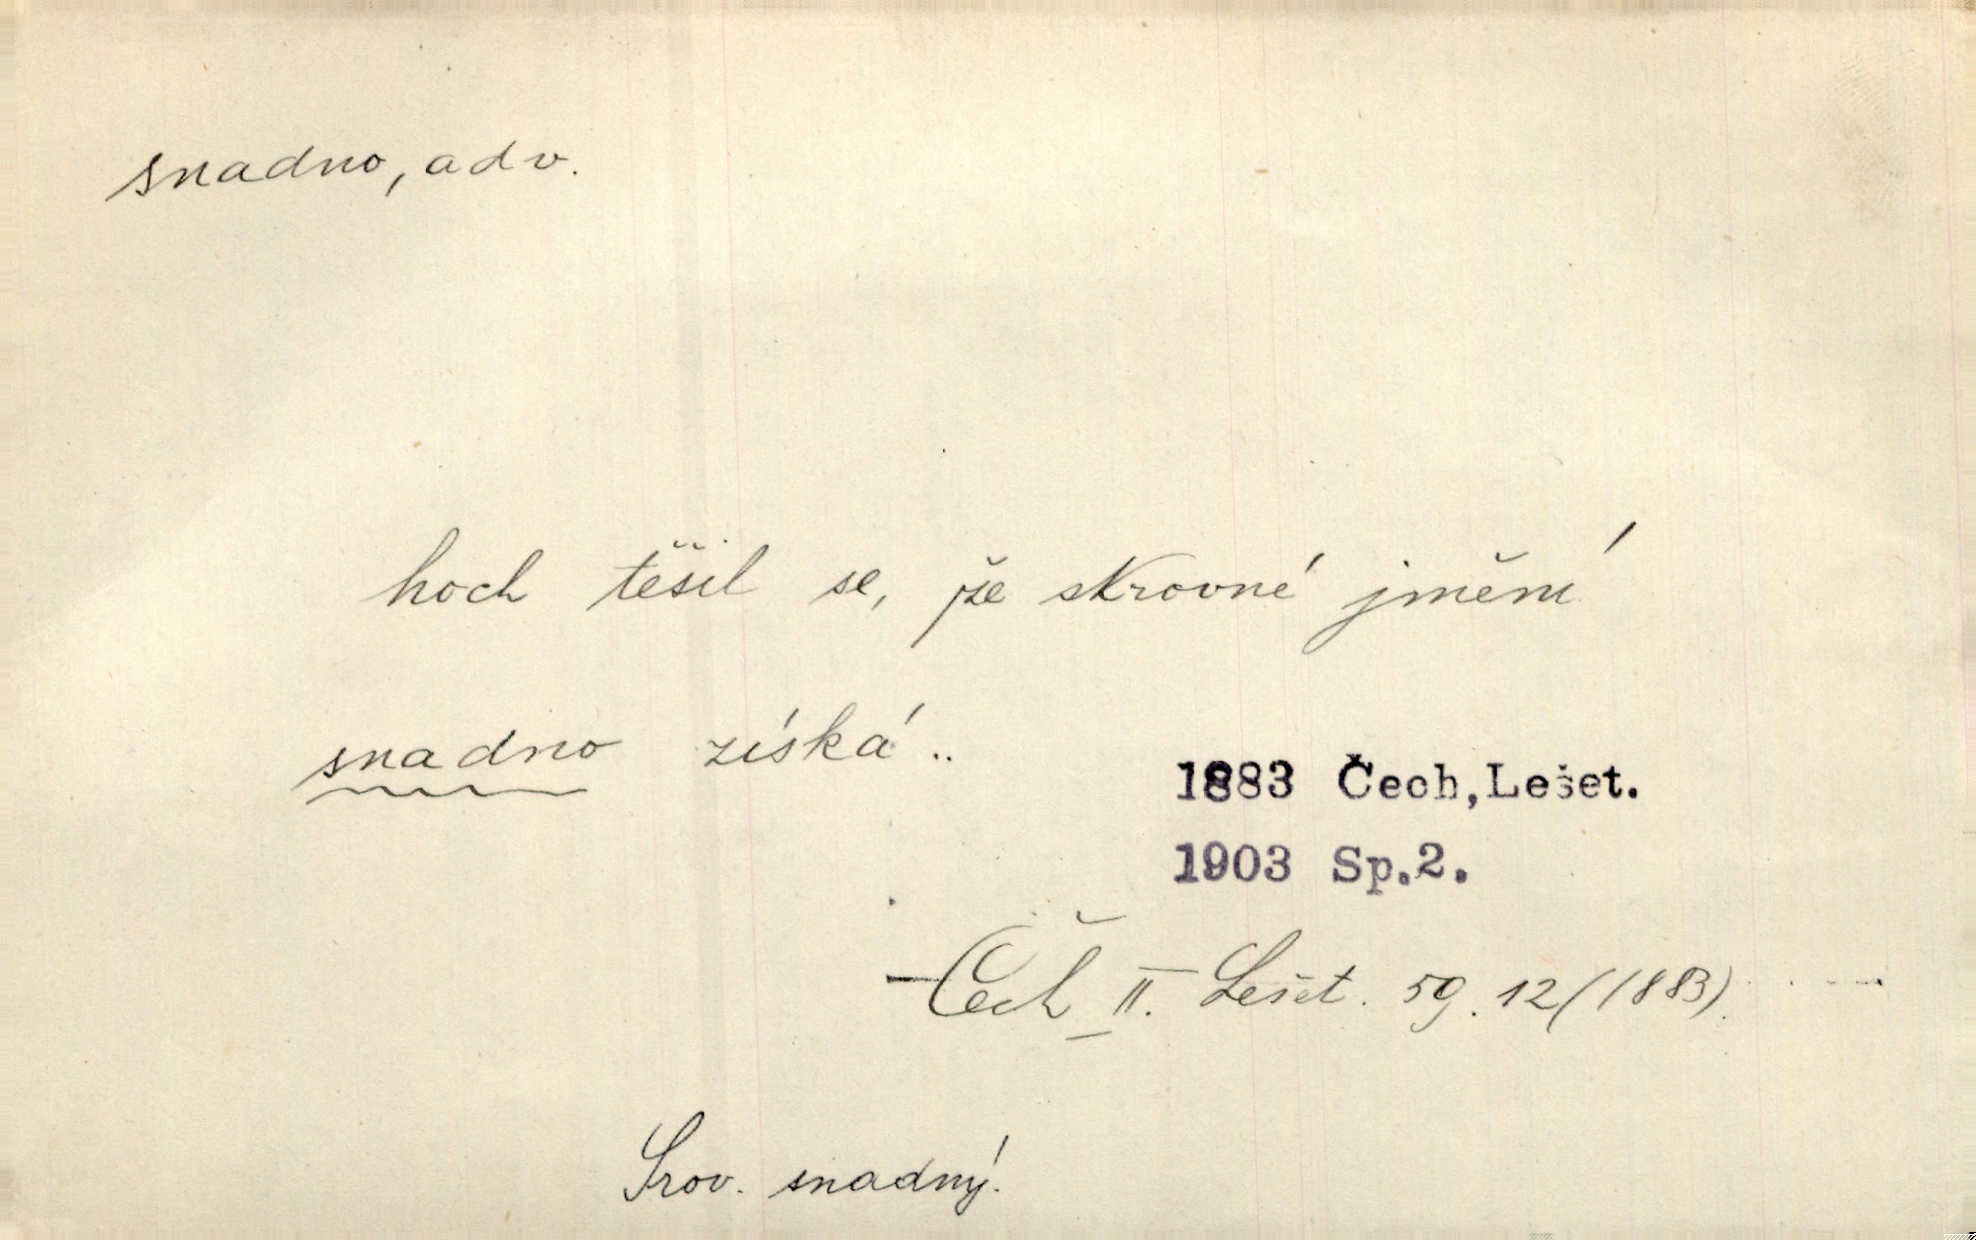 snadno, adv.
hoch těšil se, že skrovné jmění
snadno získá..
1883 Čech,Lešet.
1903 Sp.2.
— Čech II. Lešet. 59. 12 (1883).
Srov. snadný.